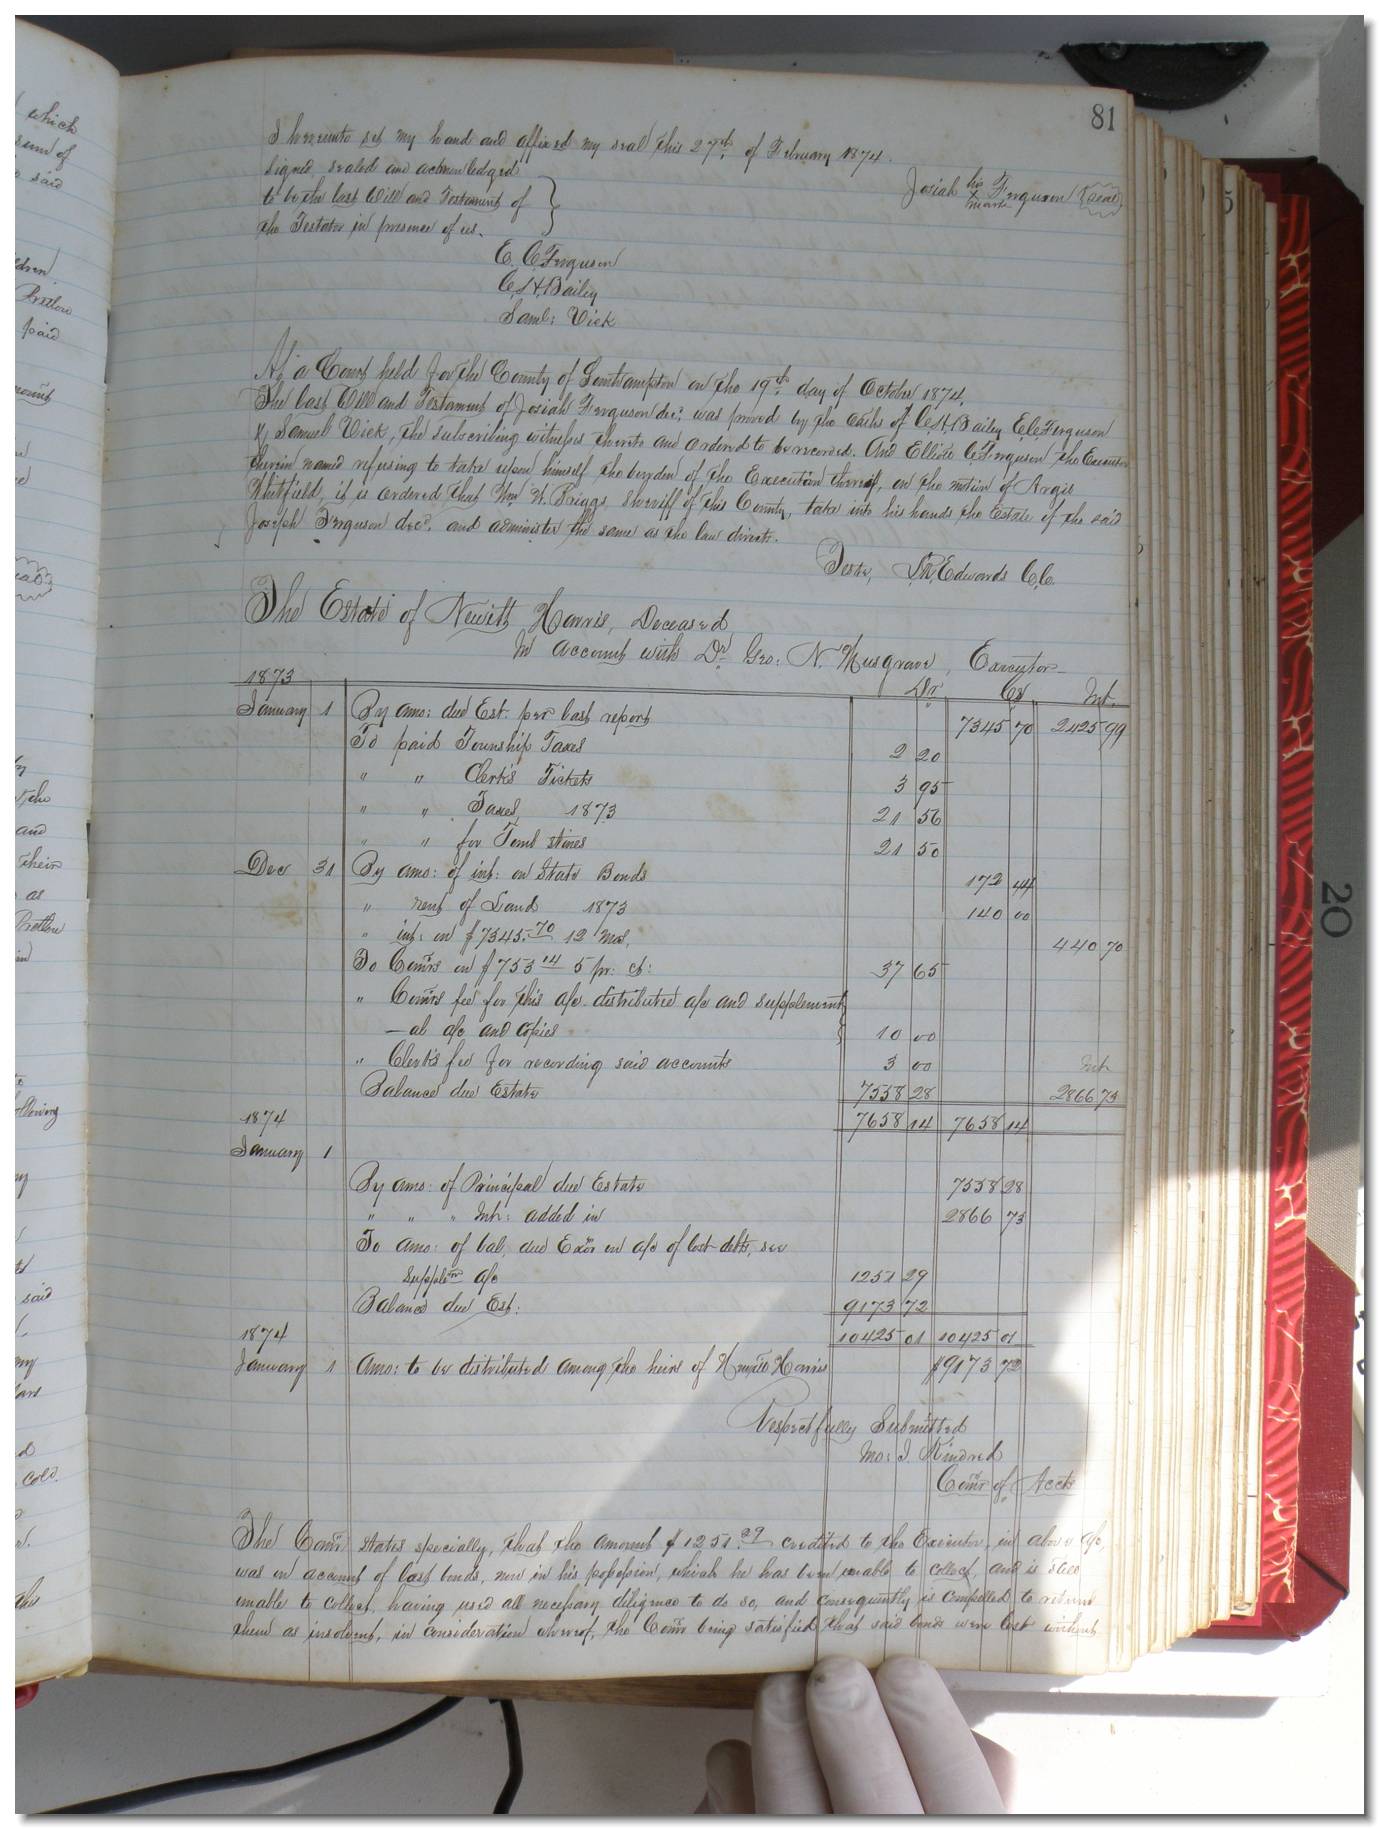 81
I hereunto set my hand and affixed my seal this 27th of February 1874.
Signed, sealed and acknowledged
to be the last Will and Testament of
the Testator in presence of us.
Josiah his mark Ferguson (Seal)
E. C. Ferguson
C. H. Bailey
Saml: Vick
At a Court held for the County of Southampton on the 19th day of October 1874.
The last Will and Testament of Josiah Ferguson decd. was proved by the oaths of C. H. Bailey E. C. Ferguson
& Samuel Vick, the subscribing witnesses thereto and ordered to be recorded. And Elliott C. Ferguson the Executor
therein named refusing to take upon himself the burden of the Execution thereof, on the motion of Argie
Whitfield, it is ordered that Wm. W. Briggs Sheriff of this County, take into his hands the Estate of the said
Joseph Ferguson decd. and administer the same as the law directs.
Teste, L. R. Edwards C. C.
The Estate of Newitt Harris, Deceased
In account with Dr Geo: N. Musgrave, Executor
1873 Dr. Cr Int.
January 1 By amo: due Est. per last report 7345 70 2425 99
To paid Township Taxes 2 20
" " Clerk's Tickets 3 95
" " Taxes, 1873 21 56
" " for Tomb stones 21 50
Dec 31 By amo: of int: on State Bonds 172 44
" rent of Land 1873 140 00
" int: on $7345.70 12 mos. 440 70
To Comrs on $753 14 5 pr. ct: 37 65
" Comrs fee for this a/c distributed a/c and supplement
-al a/c and copies 10 00
" Clerk's fee for recording said accounts 3 00 Int
Balance due Estate 7558 28 2866 73
1874 7658 14 7658 14
January 1
By amo: of Principal due Estate 7558 28
" " " Int: added in 2866 73
To amo: of bal, due Exor on a/c of lost debts, see
Supplem a/c 1251 29
Balance due Est: 9173 72
1874 10425 01 10425 01
January 1 Amo: to be distributed among the heirs of Newitt Harris $9173 72
Respectfully Submitted
Mo: I. Kindred
Comr of Accts
The Comr. states specially, that the amount $1251.29 credited to the Executor, in above a/c,
was on account of lost bonds, now in his possession, which he has been unable to collect, and is still
unable to collect, having used all necessary diligence to do so, and consequently is compelled to return
them as insolvent, in consideration whereof, the Comr being satisfied that said bonds were lost without